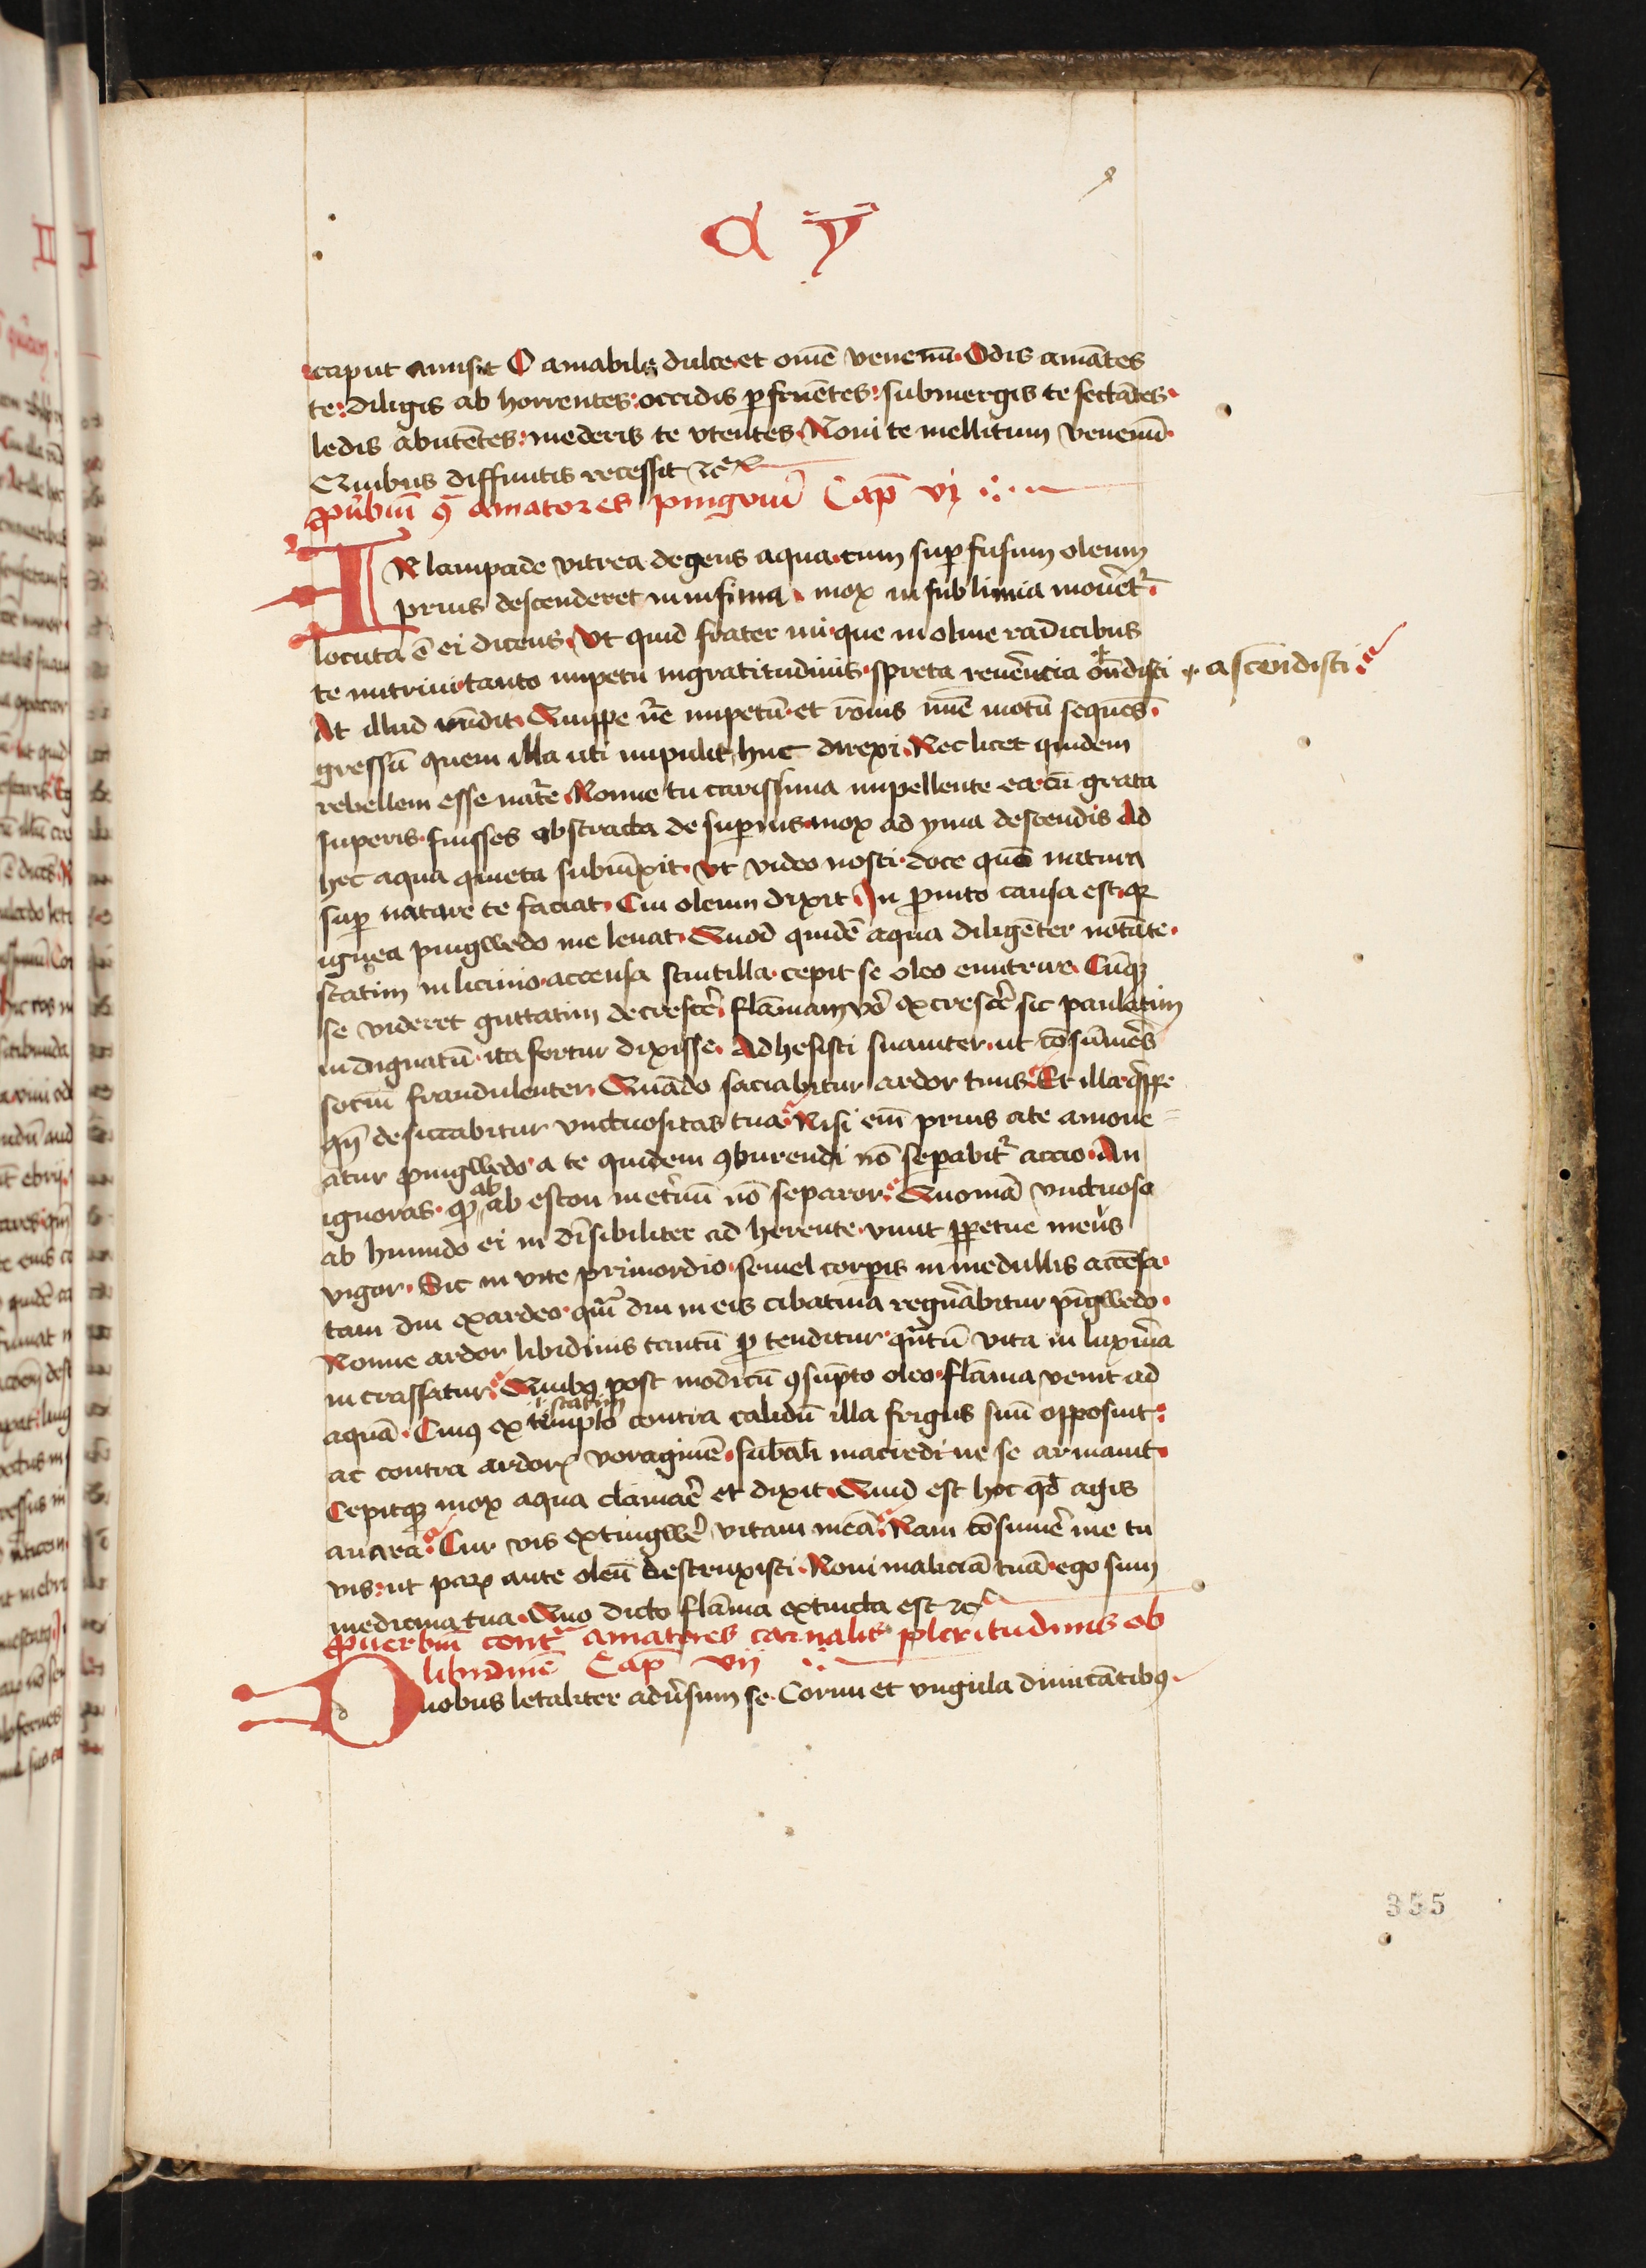 a y
caput amisit O amabile dulce et om̄e venenū Odis amātes
te: diligis ab horrentes: occidis p̱fruētes: submergis te sectātes
ledis abutētes: mederis te vtentes Noui te mellitum venenū
Quibus diffinitis recessit
Puͬbiū ꝯ amatores pingwiū Cap̄ vj
IN lampade vitrea degens aqua cum sup̱fusum oleum
prius descenderet in infima mox in sublimia mouēt᷑
locuta ē ei dicens Vt quid frater mi que in oliue radicibus
te nutriui tanto impetu ingratitudinis spreta reuēncia
ascendisti
At illud rn̄dit Quippe nr̄e impetū et rōnis nūc motū sequēs
gressū quem illa uti impulit huc direxi Nec licet quidem
rebellem esse nat᷑e Nonne tu carissima impellente ea cū grata
superis fuisses abstracta de sup̱ius mox ad yma descendis Ad
hec aqua quieta subiūxit Vt video nosti doce quō natura
sup̱ natare te faciat Cui oleum dixit In p̱mito causa est qꝛ
ignea pingwedo me leuat Quod quidē aqua diligēter notāte
statim in licinio accensa scintilla cepit se oleo enutrire Cūqꝫ
se videret guttatim decresc̄e flāmam vō excresc̄e sic paulatim
indignatū ita fertur dixisse Adhesisti suauiter ut cōsum̄es
sociū fraudulenter Quādo saciabitur ardor tuus Et illa q̄ppe
qn̄ desiccabitur vnctuositas tua Nisi em̄ prius a te amoue=
atur pingwedo a te quidem ꝯburendi nō sep̱abit᷑ accio An
ignoras qꝫ ab ab escon inet̄nū nō separor Quoniā vnctuose
ab humido ei in dīsibiliter ad herente viuit p̱petue meus
vigor Sic in vite primordio semel corp̱is in medullis accēsa
tam diu exardeo qm̄ diu in eis cibatiua regn̄abitur pīgwedo
Nonne ardor libidinis tantū p̱tenditur qn̄tū vita in luxur̄ia
in crassatur Quibꝰ post modicū ꝯsūpto oleo flāma venit ad
aquā Cuiꝰ ex templo .i. statim contra calidū illa frigus suū opposuit
ac contra ardorꝭ voraginē macredine se armauit
Cepitqꝫ mox aqua clamar̄e et dixit Quid est hoc qd̄ agis
auara Cur vis extingwēr vitam meā Nam cōsumēr me tu
vis ut parꝭ ante oleū destruxisti Noui maliciā tuā ego sum
medicina tua Quo dicto flāma extincta est
Puerbiū cont᷑ amatores carnalis plcritudinis ob
libidinē Cap̄ vij
Duobus letaliter adūsum se Cornu et vngula dimicātibꝰ
355